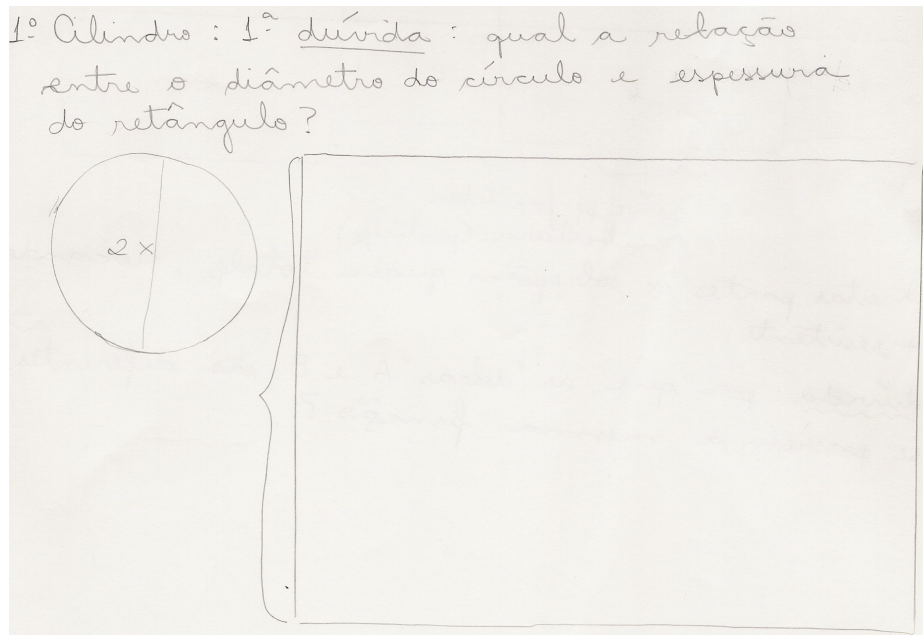 1º Cilindro : 1ª dúvida : qual a relação
entre o diâmetro do círculo e espessura
do retângulo?
2x